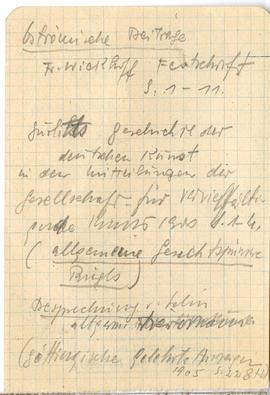 oströmische Beiträge
Fr. Wickhoff Festschrift
S. 1 – 11.
Gurlitts Geschichte der
deutschen Kunst
in den Mitteilungen der
Gesellschaft für vervielfälti
gende Kunst S. 14.
(allgemeine Geschichts
Riegls)
Besprechung v.
allgem
(Göttingische Gelehrte Anzeigen
1905 S. 228